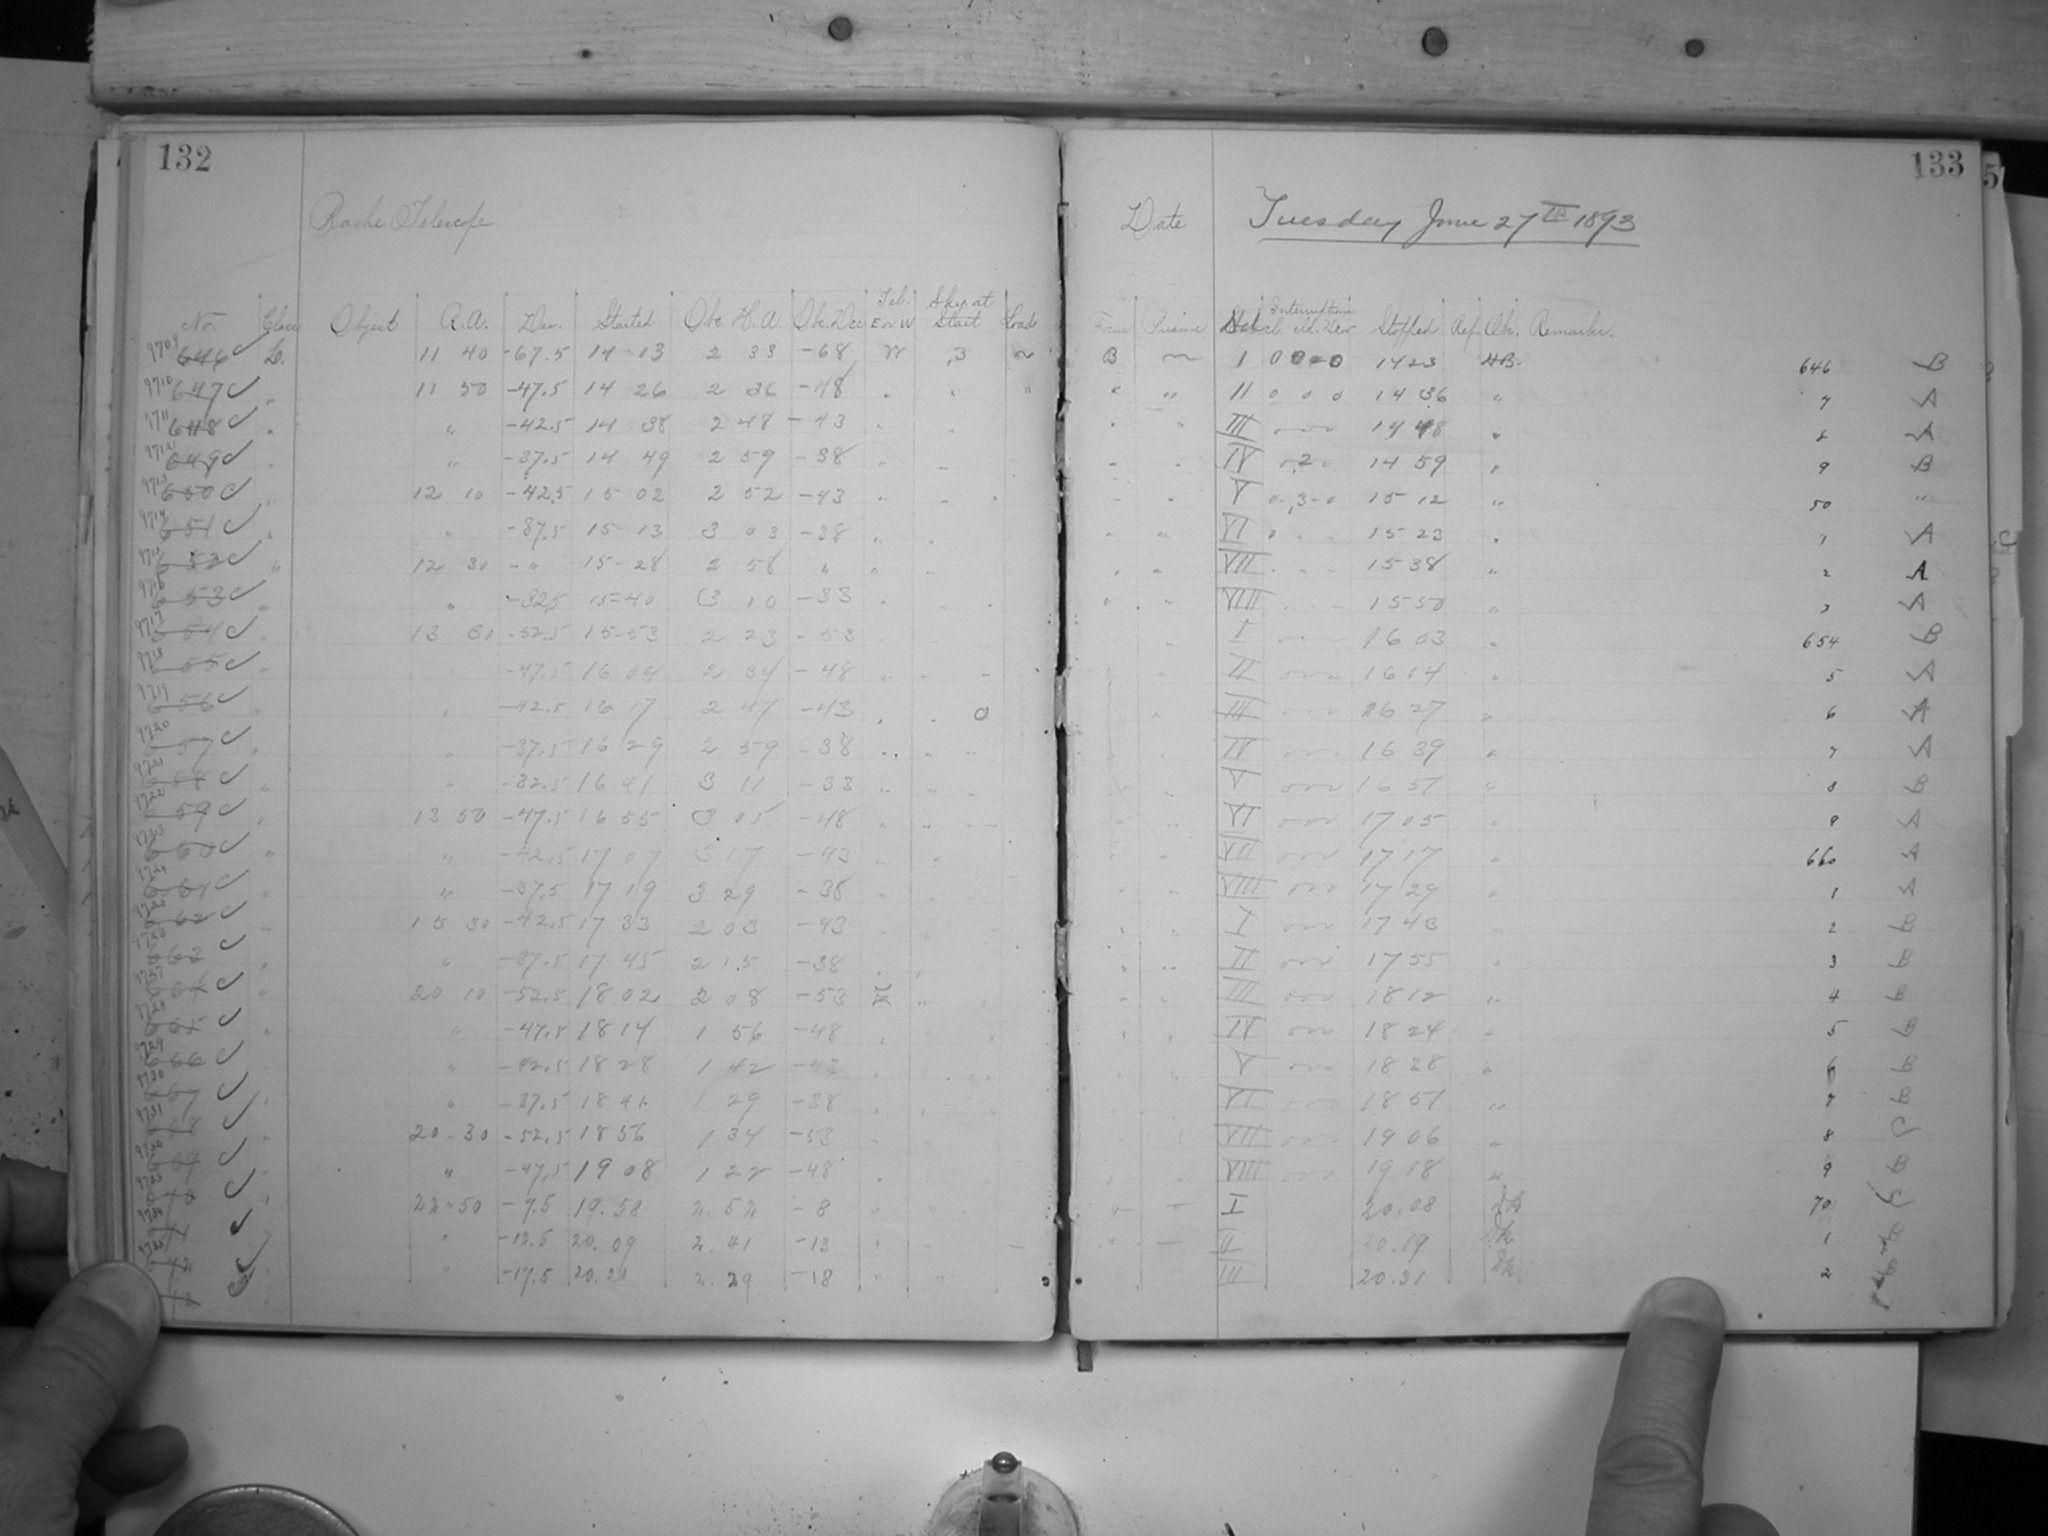 132
Bache Telescope
No. Class Object R.A. Dec. Started Obs. H.A. Obs. Dec Tel. E or W Sky at Start
9709 646 L. 11 40 -67.5 14 13 2 33 -68 W 3 ~
9710 647 " 11 50 -47.5 14 26 2 36 -48 " " "
9711 648 " " -42.5 14 38 2 48 -43 " "
9712 649 " " -37.5 14 49 2 59 -38 " "
9713 650 " 12 10 -42.5 15 02 2 52 -43 " "
9714 651 " " -37.5 15 13 3 03 -38 " "
9715 652 " 12 30 - " 15 28 2 58 " " "
9716 653 " " -32.5 15 40 3 10 -33 " "
9717 654 " 13 30 -52.5 15 53 2 23 -53
9718 655 " " -47.5 16 04 2 34 -48 " "
9719 656 " " -42.5 16 17 2 47 -43 " " 0
9720 57 " " -37.5 16 29 2 59 -38 " "
9721 58 " " -32.5 16 41 3 11 -33 " "
9722 59 " 13 50 -47.5 16 55 3 05 -48 " "
9723 60 " " -42.5 17 07 3 17 -43 " "
9724 61 " " -37.5 17 19 3 29 -38
62 " 15 30 -42.5 17 33 2 03 -43
63 " " -37.5 17 45 2 15 -38
20 10 -52.5 18 02 2 08 -53
65 " " -47.5 18 14 1 56 -48
9729 66 " -42.5 18 28 1 42 -43
9730 67 " -37.5 18 41 1 29 -38
9731 68 20 30 -52.5 18 56 1 34 -53
69 " -47.5 19 08 1 22 -48
22 50 -7.5 19.58 2.52 -8
" -12.5 20.09 2.41 -13
" -17.5 20.21 2.29 -18
133
Date Tuesday June 27th 1893
Interruptions Stopped Ref. Obs. Remarks.
B ~ I 0 0 0 14 23 646 B
" " II 0 0 0 14 36 " 7 A
" " III 14 48 " 8 A
" " IV 2 14 59 " 9 B
" " V 0 3 0 15 12 " 50 "
" " VI 15 23 " 1 A
" " VII 15 38 " 2 A
" " VIII 15 50 " 3 A
I 16 03 " 654 B
II 16 14 " 5 A
III 16 27 " 6 A
IV 16 39 " 7 A
V 16 51 " 8 B
VI 17 05 " 9 A
VII 17 17 " 660 A
VIII 17 29 " 1 A
I 17 43 " 2 B
II 17 55 " 3 B
III 18 12 " 4 B
IV 18 24 " 5 B
V 18 38 " 6 B
VI 18 51 " 7 B
VII 19 06 " 8
VIII 19 18 " 9 B
I 20.08 70
II 20.19 1
III 20.31 2